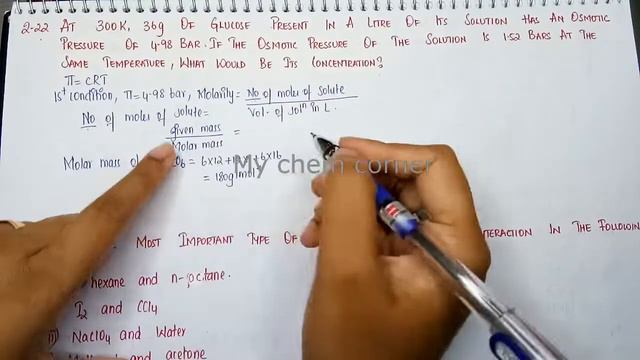 2.22 AT 300K, 36g OF GLUCOSE PRESENT IN A LITRE OF ITS SOLUTION HAS AN OSMOTIC
PRESSURE OF 4.98 BAR. IF THE OSMOTIC PRESSURE OF THE SOLUTION IS 1.52 BARS AT THE
SAME TEMPERATURE, WHAT WOULD BE ITS CONCENTRATION?
π = CRT
Ist condition, π = 4.98 bar, Molarity = No of moles of solute
Vol. of solⁿ in L.
No of moles of solute =
given mass =
Molar mass
Molar mass of O6 = 6x12+ +6x16
= 180g mol
My chem corner
MOST IMPORTANT TYPE OF INTERACTION IN THE FOLLOWIN
hexane and n-octane.
I2 and CCl4
NaClO4 and Water
and acetone